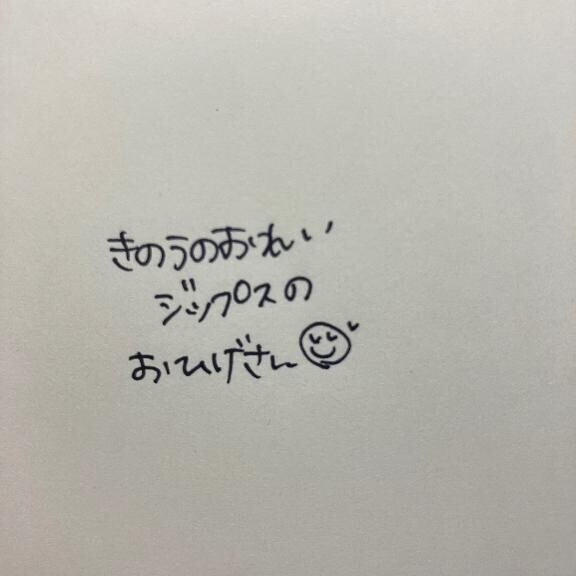 きのうのおれい
ジップスの
おひげさん